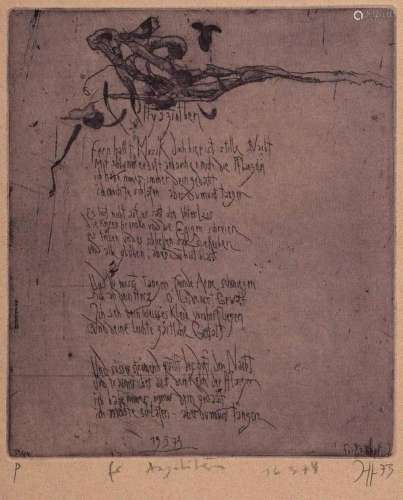 Hyazinthen
Fern hallt Musik doch hier ist stille Nacht
mit Schlummerduft anhauchen mich die Pflanzen
ich habe immer immer dein gedacht
ich möchte schlafen aber du musst tanzen
es hört nicht auf es rast ohn Unterlass
die Kerzen brennen und die Geigen schreien
es teilen und es schliessen sich die Reihen
und alle glühen, aber du bist blass
Und du musst tanzen fremde Arme schmiegen
sich an dein Herz o Gewalt
Ich seh dein weisses Kleid vorüberfliegen
und deine leichte zärtliche Gestalt
Und süsser strömend quillt der Duft der Nacht
und träumerischer aus dem Kelch der Pflanzen
ich habe immer, immer dein gedacht
ich möchte schlafen - aber du musst tanzen
19 3 73
P
73